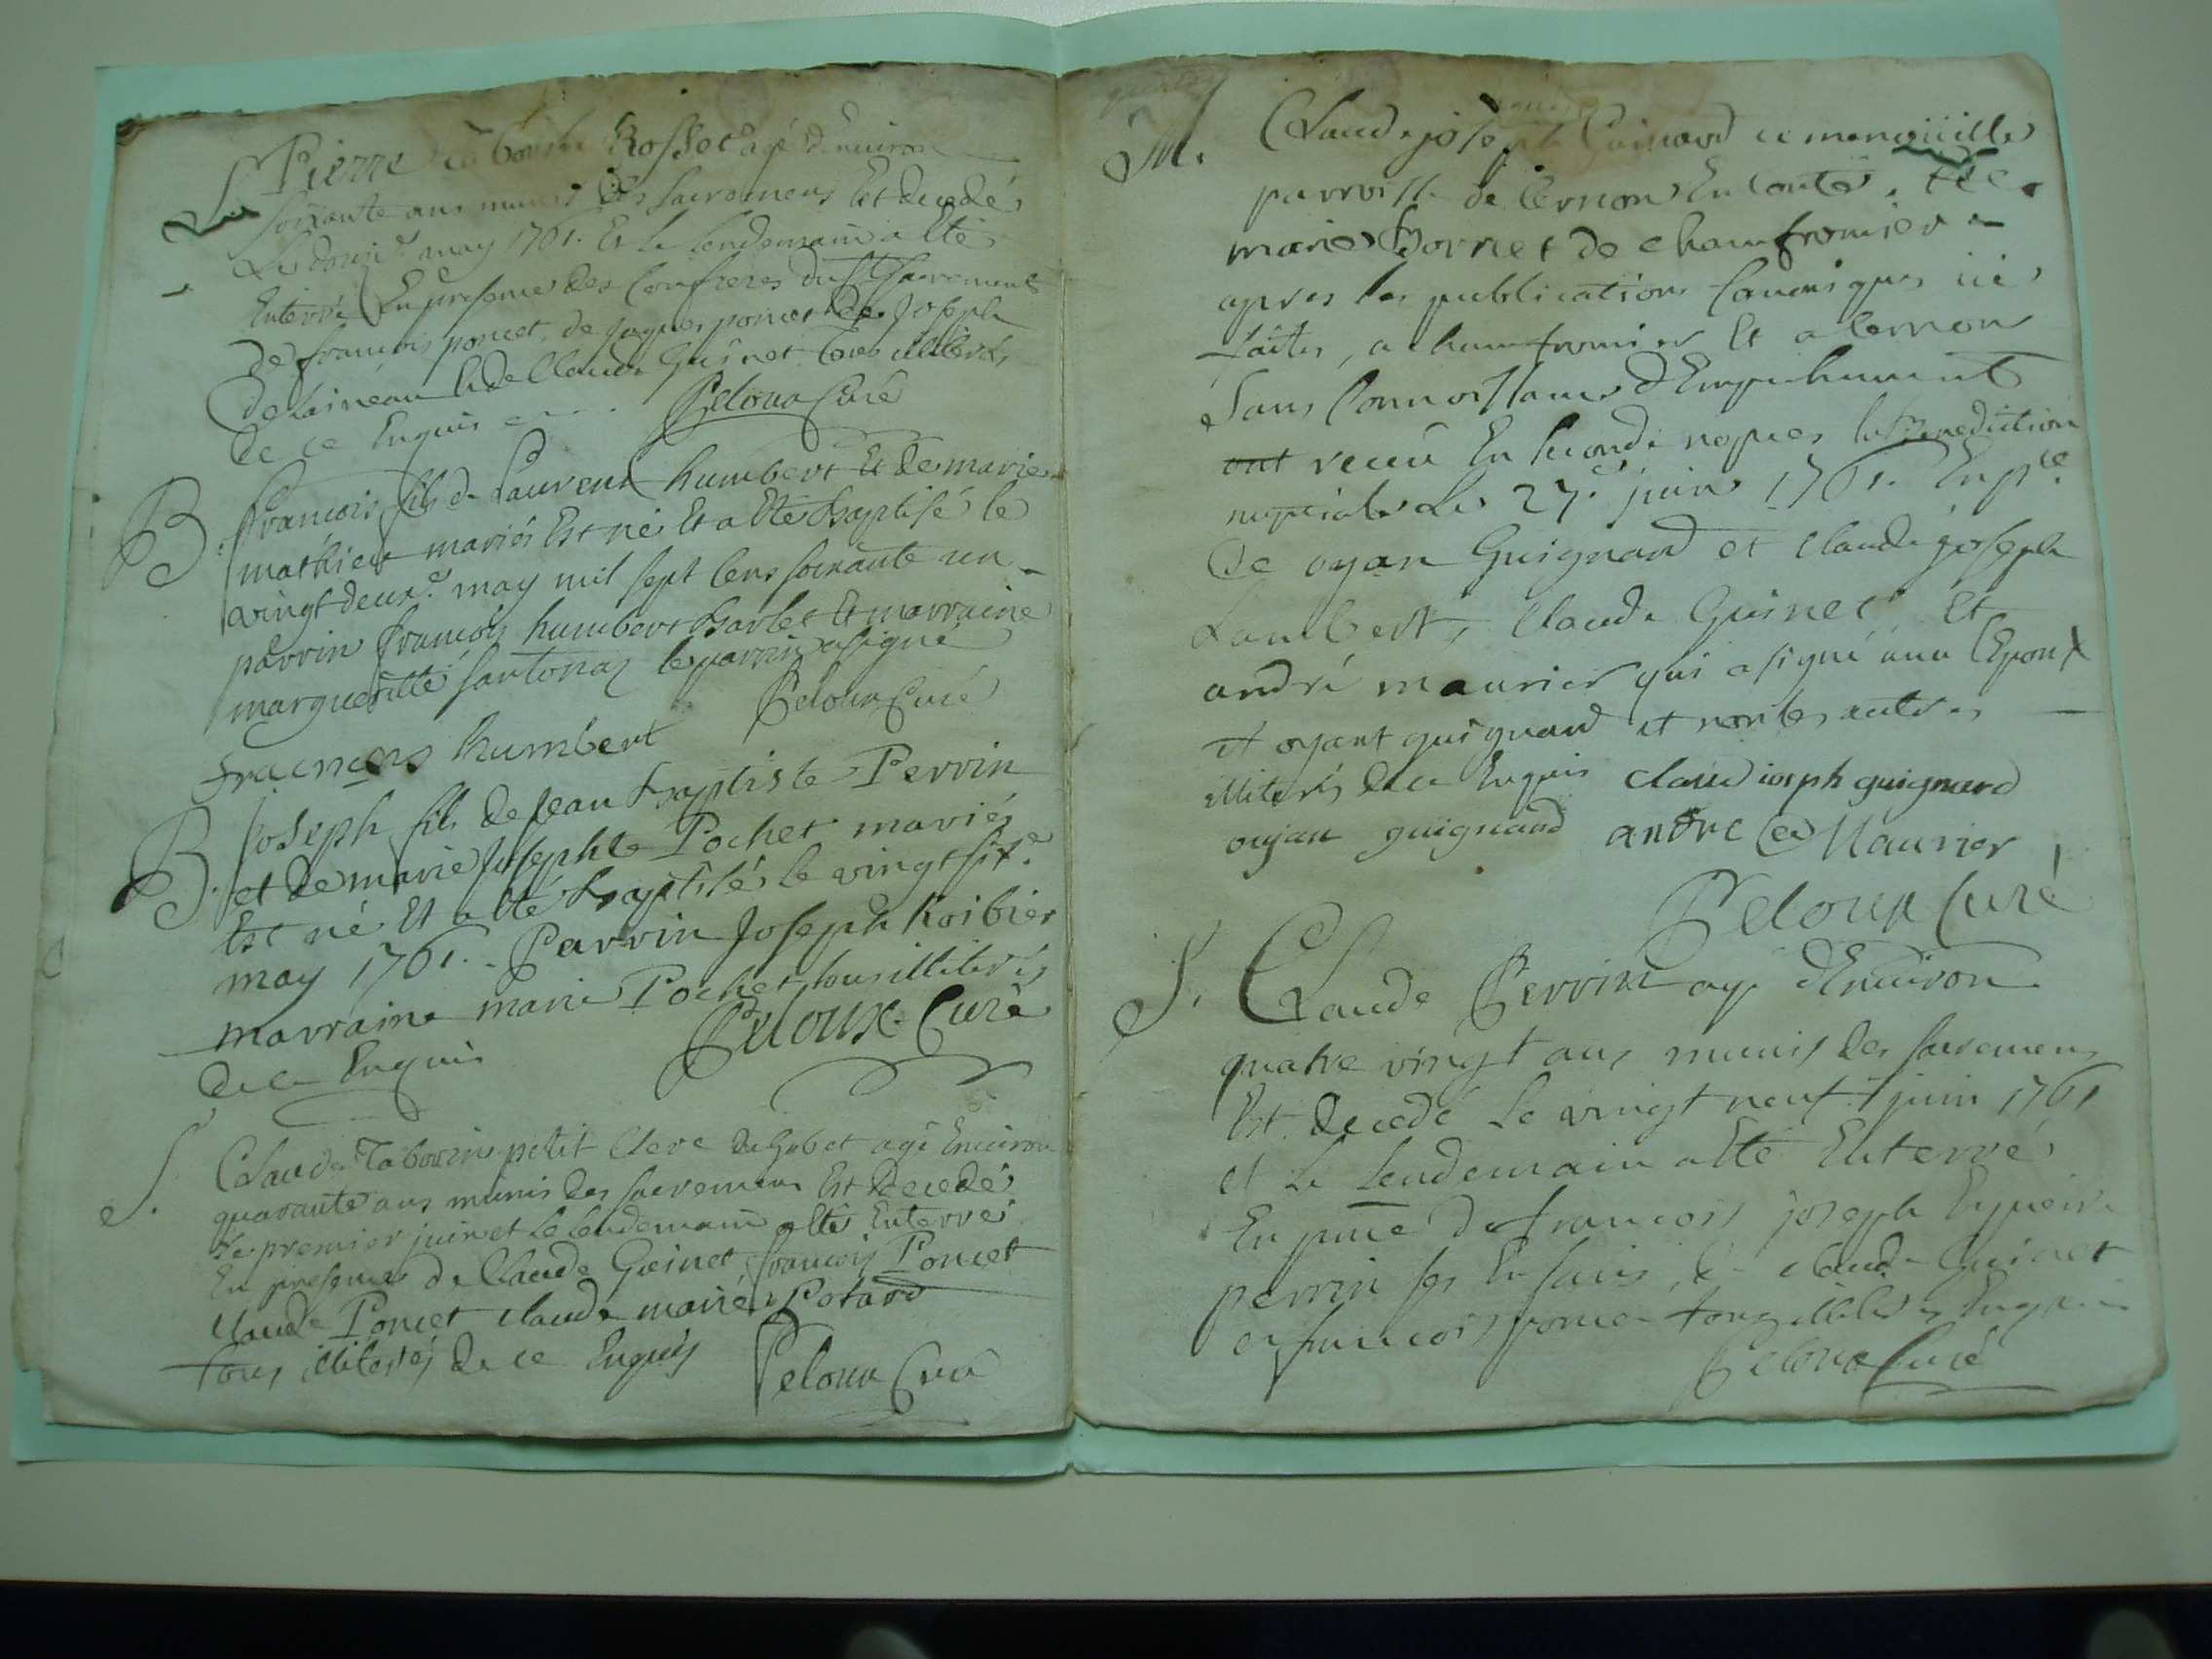 S. Pierre Tabourin Rosset agé d'environ
soixante ans munis des sacremens Est decedé
Le douze may 1761. Et le lendemain a Eté
Enterré En presence des Confreres du St sacrement
de francois poncet, de jaques poncet de Joseph
et de Claude Guinet tous illiterés
de ce Enquis
Peloux Curé
B. francois fils de Laurent humbert Et de marie
mathieu mariés Est né Et a Eté baptisé le
vingt deux.e may mil sept cens soixante un
parrin francois humbert barlet Et marraine
margueritte santonaz le parrin a signé
fraencoes humbert
Peloux Curé
B. Joseph fils de Jean baptiste Perrin
et de marie Josephte Pochet mariés
Est né Et a Eté baptisés le vingt six.e
may 1761. Parrin Joseph Roibier
marraine marie Pochet tous illiterés
de ce Enquis
Peloux Curé
S. Claude Tabourin petit Clerc agé Environ
quarante ans munis des sacremens Est decedé
Le premier juin et le lendemain a Eté Enterré
En presence de Claude Guinet francois Poncet
Claude Poncet claude marie Potard
tous illiterés de ce Enquis
Peloux Curé
M. Claude joseph Guinard de
parroisse de Cernon En Comté, Et
marie Bornet de chamfromier
apres les publications Canoniques
faites, a chamfromier Et a Cernon
sans Connoissance d'Empechement
ont receu En seconde nopces la Benediction
nuptiale Le 27.e juin 1761. En p.ce
de oyan Guignard et claude joseph
Lambert, Claude Guinet, Et
andré maurier qui a signé avec l'Epoux
et oyant guignard et non les autres
illiterés de ce Enquis claud ioseph guignard
oyan guignard andre Maurier
Peloux Curé
S. Claude Perrin agé d'Environ
quatre vingt ans munis des sacremens
Est decedé Le vingt neuf juin 1761
et le lendemain a Eté Enterré
En p.nce de francois joseph
perrin ses Enfans, de claude Guinet
et francois poncet tous illiterés Enquis
Peloux Curé